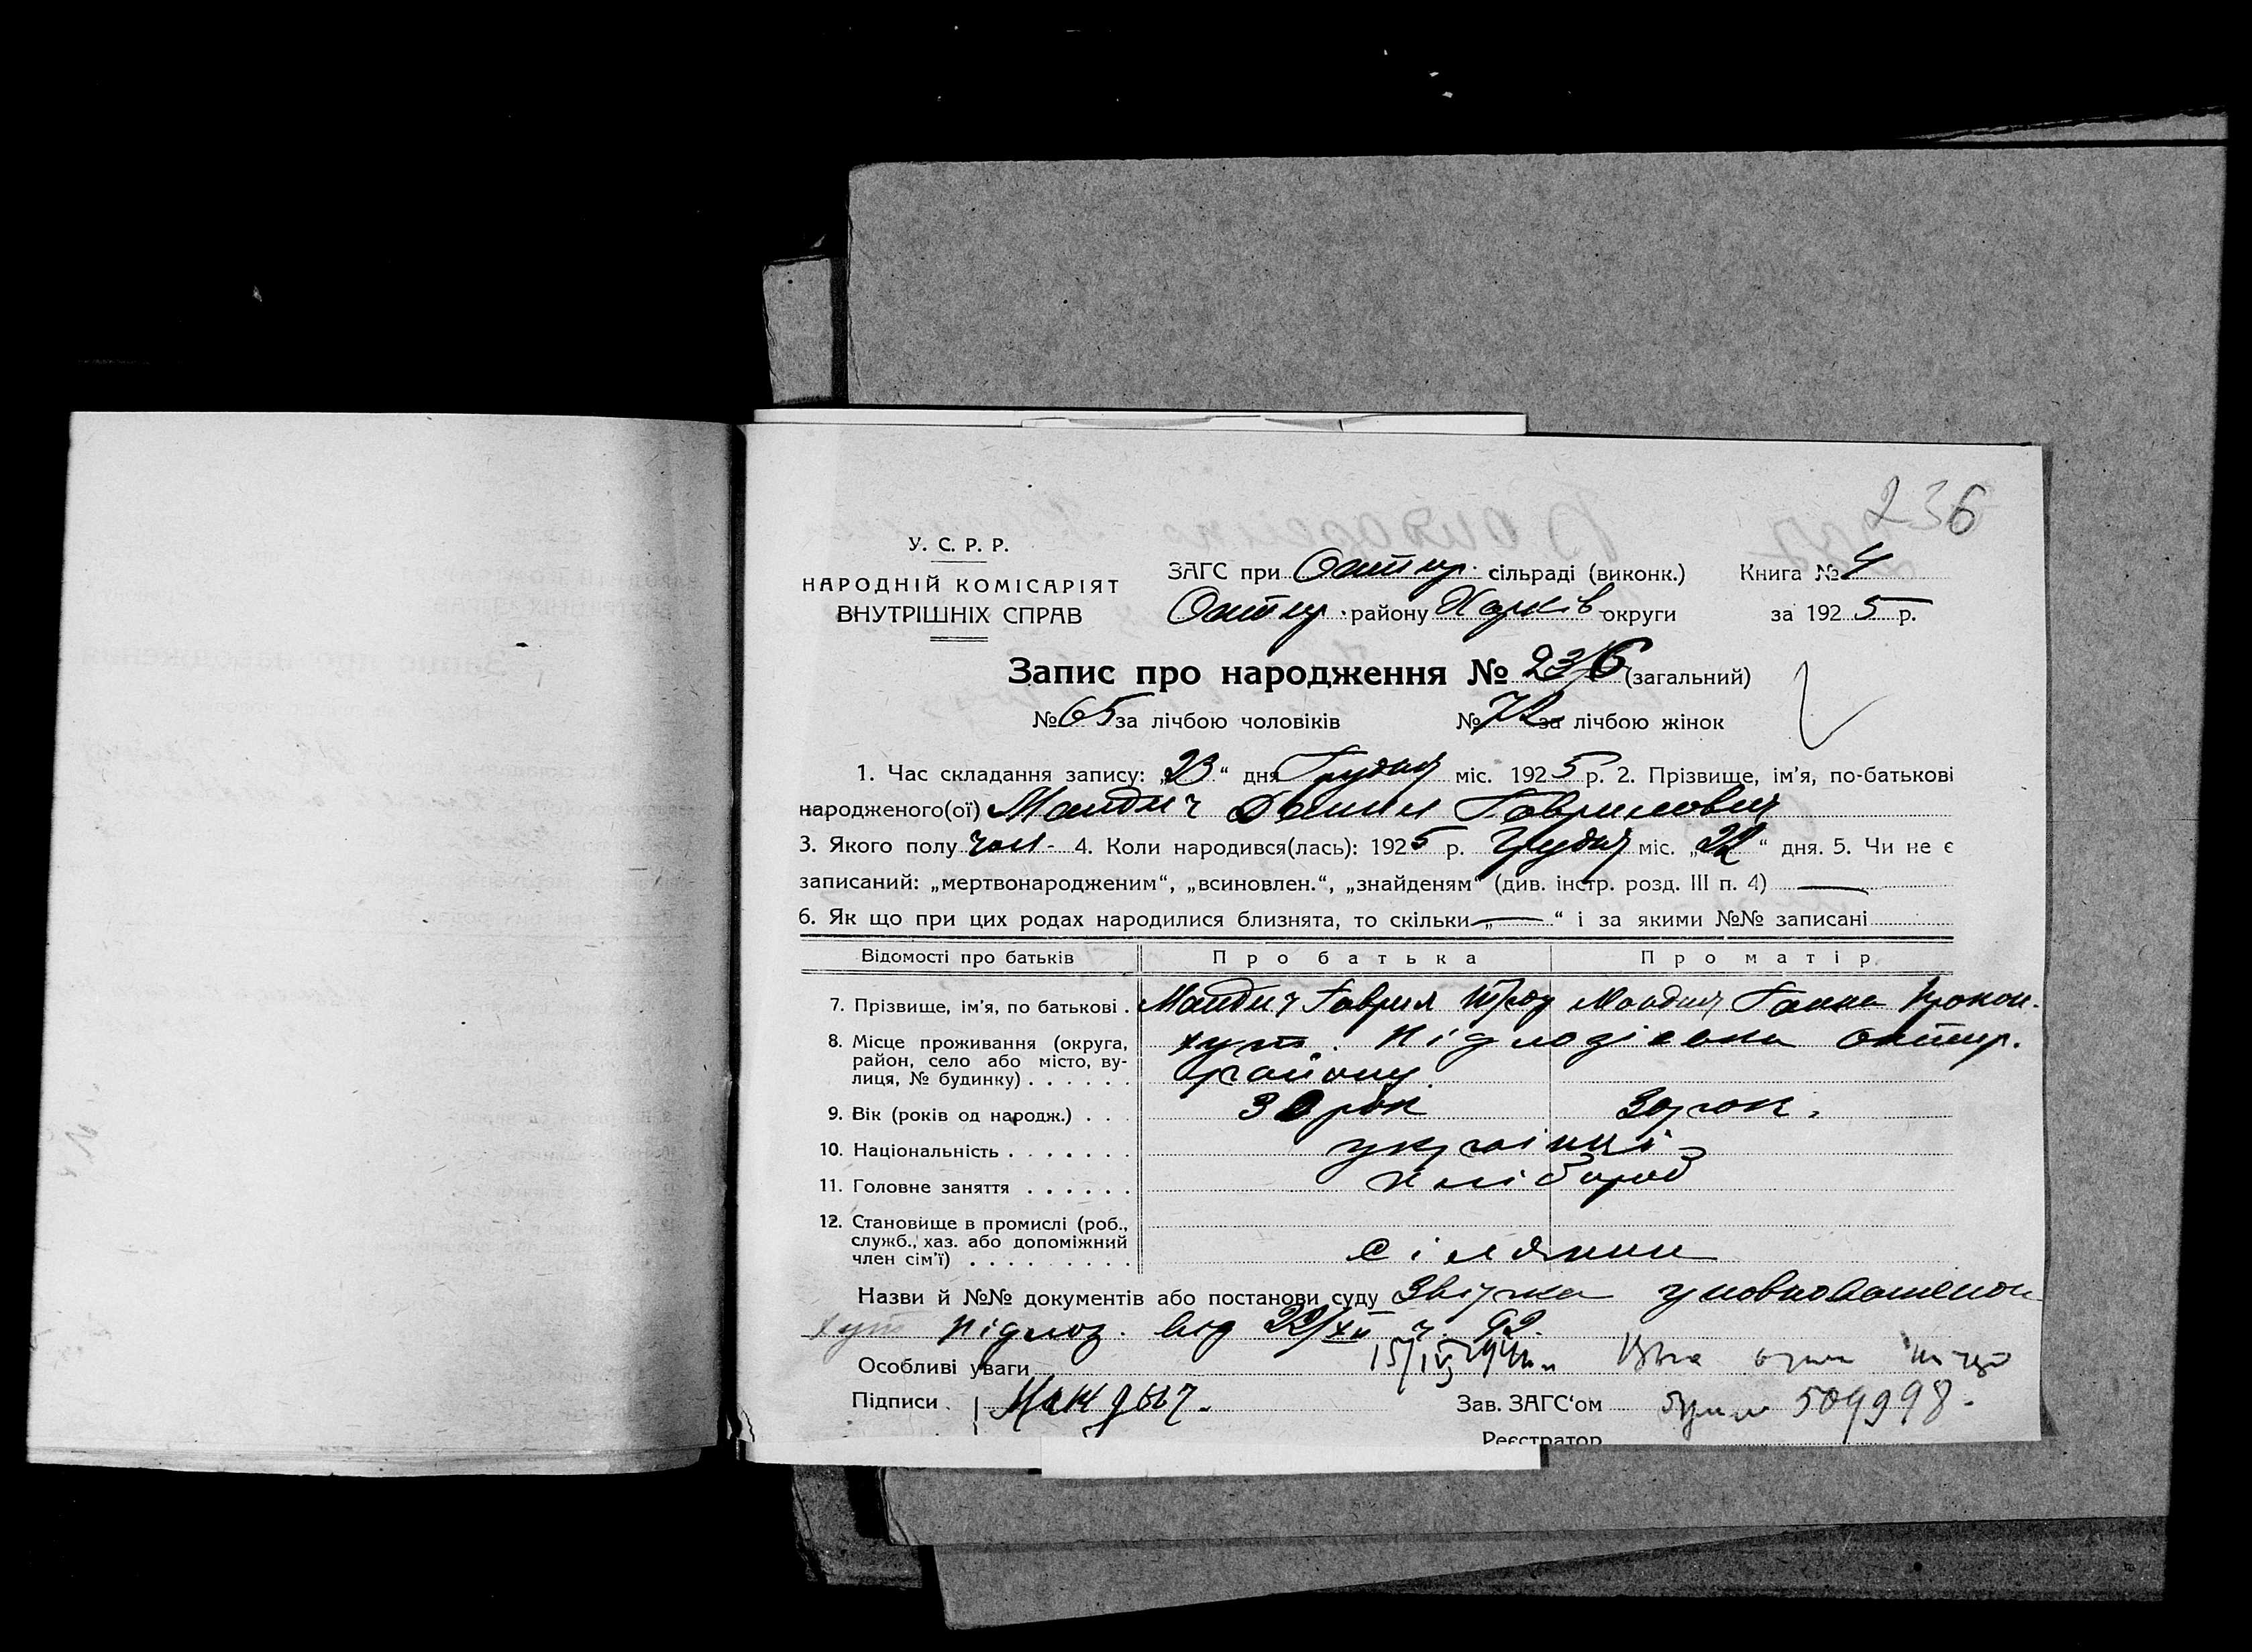 236
У. С. Р. Р.
НАРОДНІЙ КОМІСАРІЯТ
ВНУТРІШНІХ СПРАВ
ЗАГС при Охтир. сільраді (виконк.) Книга № 4
Охтир. району Харків округи за 1925 р.
Запис про народження № 236 (загальний)
№ 65 за лічбою чоловіків № 72 за лічбою жінок
1. Час складання запису: „23“ дня Грудня міс. 1925 р. 2. Прізвище, ім’я, по-батькові
народженого(ої) Мандич Данил Гаврилович
3. Якого полу чол- 4. Коли народився(лась): 1925 р. Грудня міс. „22“ дня. 5. Чи не є
записаний: „мертвонародженим“, „всиновлен.“, „знайденям“ (див. інстр. розд. III п. 4) —
6. Як що при цих родах народилися близнята, то скільки „—“ і за якими №№ записані
Відомості про батьків Про батька Про матір
7. Прізвище, ім’я, по батькові . Мандич Гаврил Мандич Ганна Прокоп.
8. Місце проживання (округа, район, село або місто, вулиця, № будинку) . . . . . . хут. Підлозієвка Охтир.
району
9. Вік (років од народж.) . . . 30 рок 30 рок.
10. Національність . . . . . . . україниі
11. Головне заняття . . . . . . хлібороб
12. Становище в промислі (роб., служб., хаз. або допоміжний член сім’ї) . . . . . . . . . сілянин
Назви й №№ документів або постанови суду Звірка уповноваженом
хут Підлоз. від 22/XII ч. 92.
Особливі уваги 15/IV
Підписи Мандыч. Зав. ЗАГС‘ом 509998.
Реєстратор